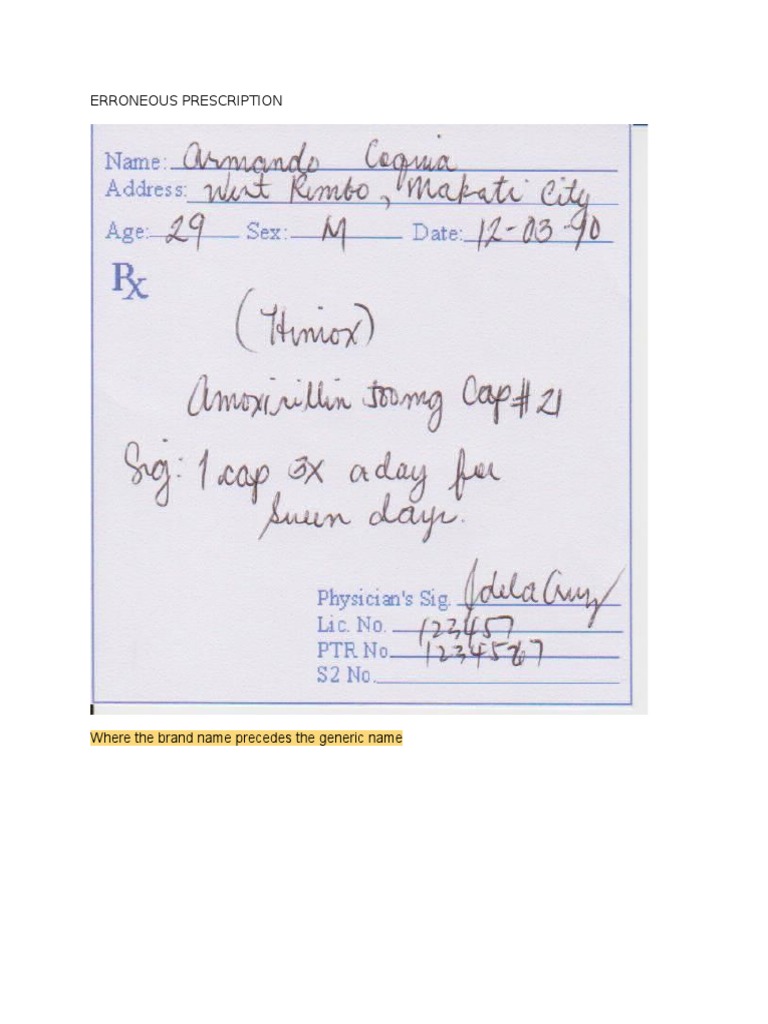 ERRONEOUS PRESCRIPTION
Name: Armando Coquia
Address: West Rembo, Makati City
Age: 29 Sex: M Date: 12-03-90
Rx
(Himox)
Amoxicillin 500mg Cap # 21
Sig: 1 cap 3x a day for
seven days.
Physician's Sig. J dela Cruz
Lic. No. 123457
PTR No. 1234567
S2 No.
Where the brand name precedes the generic name